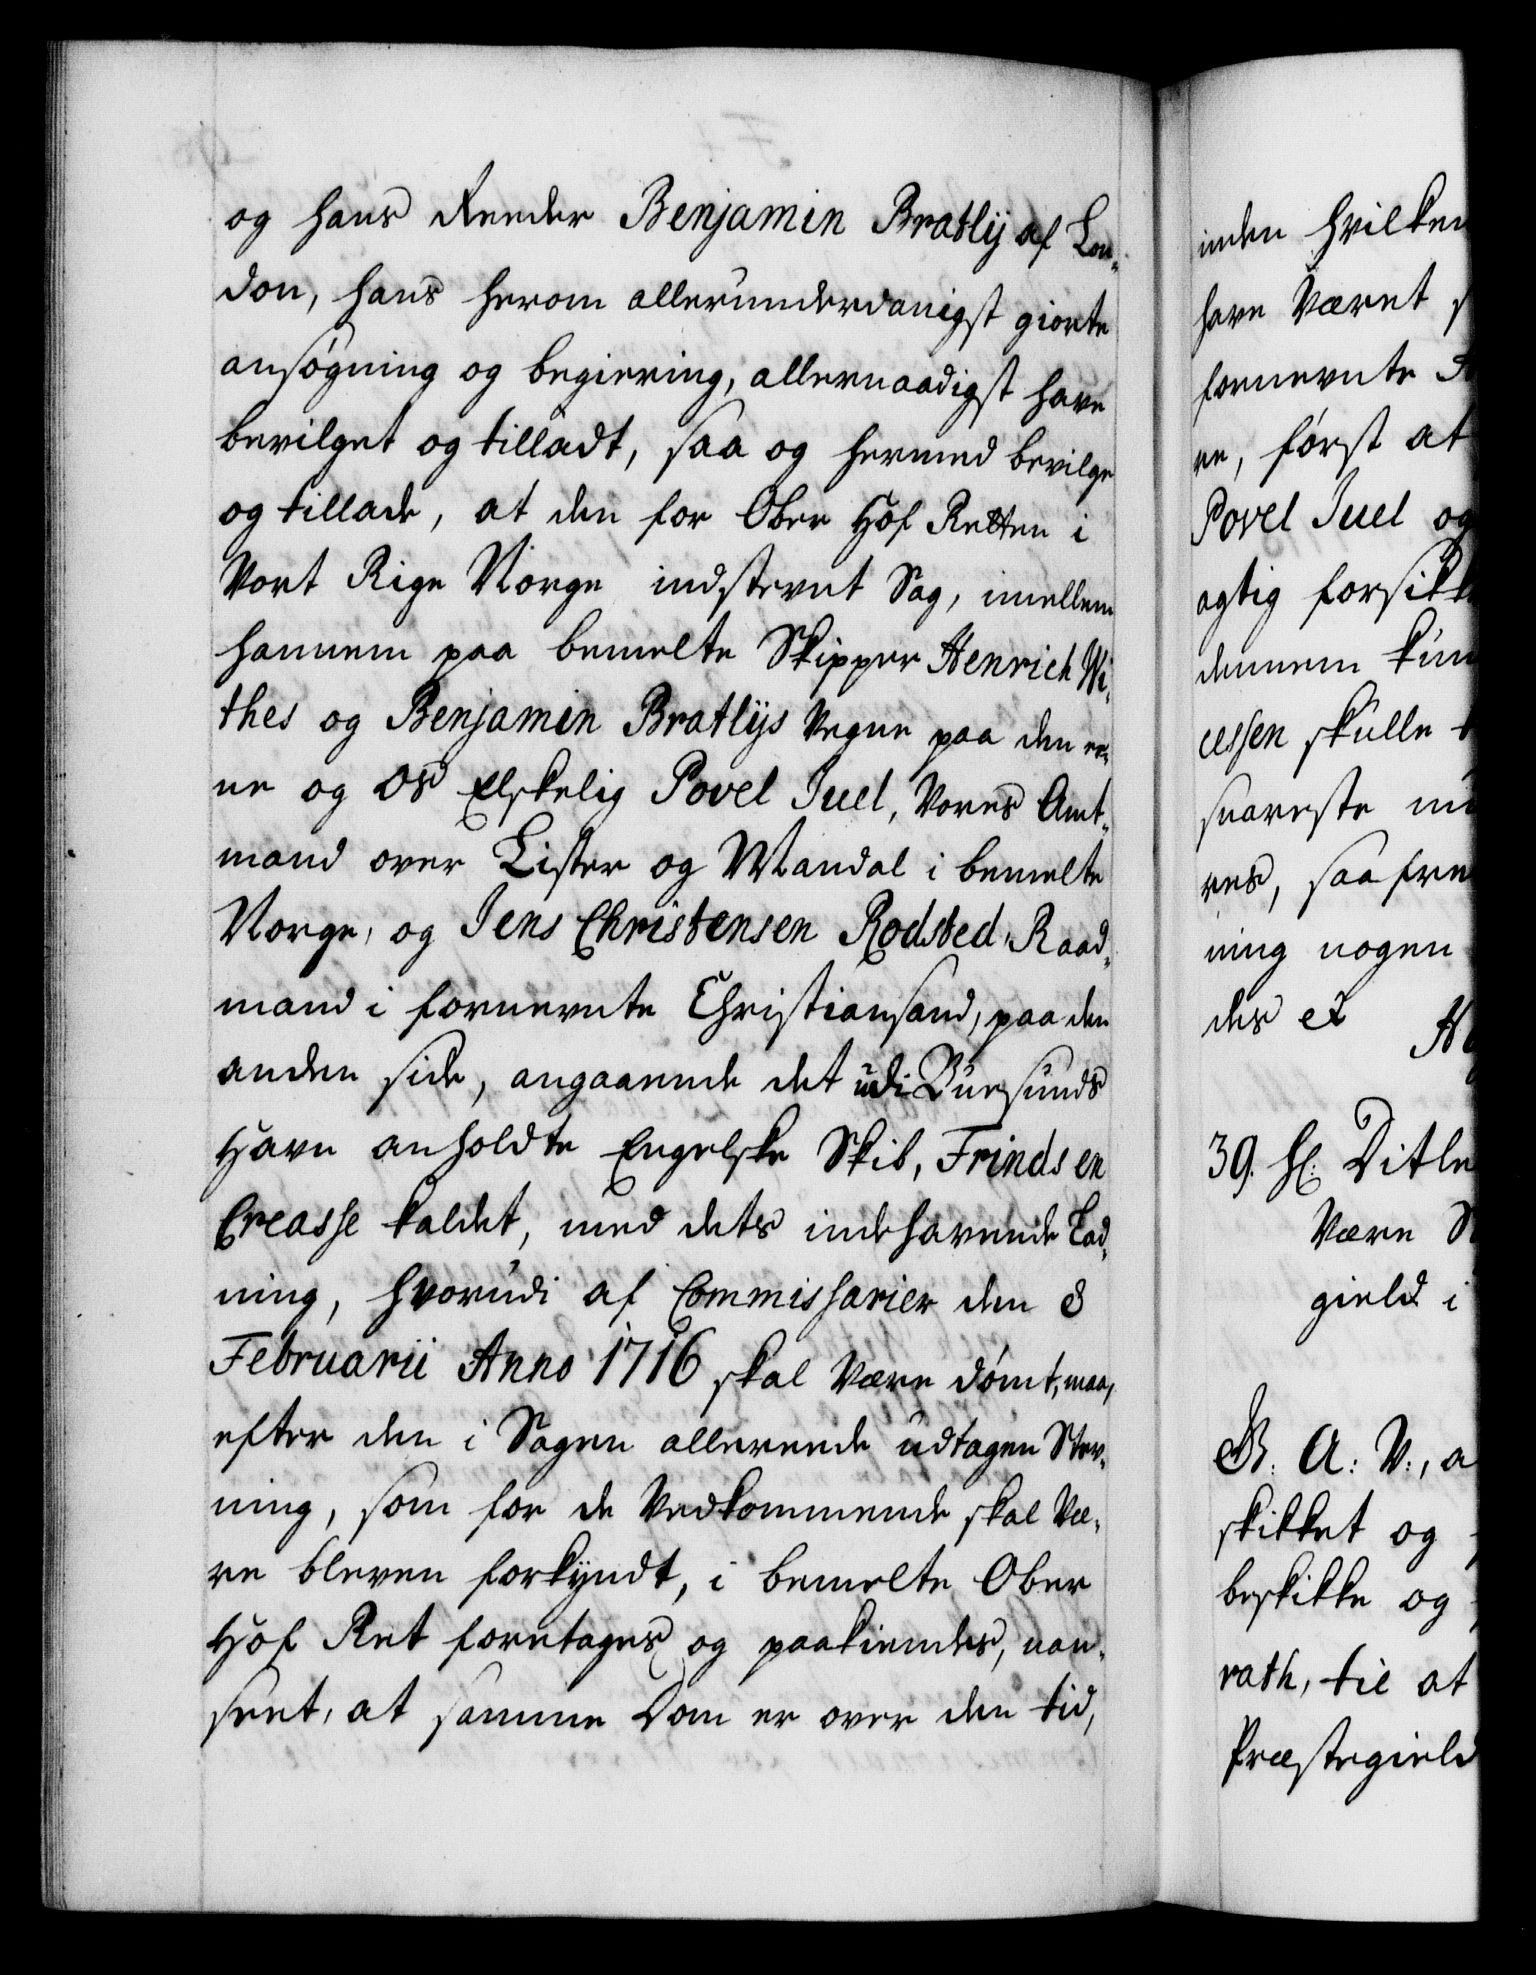 og hans Reeder Benjamin Bratlÿ af Lon-
don, hans herom allerunderdanigst giorte
ansøgning og begiering, allernaadigst have
bevilget og tilladt, saa og hermed bevilge
og tillade, at den for Ober Hof Retten i
Vort Rige Norge indstevnt Sag, imellem
hannem paa bemelte Skipper Henrich Wi-
thes og Benjamin Bratlÿs Vegne paa den ee-
ne og OS Elskelig Povel Juel, Vores Amt-
mand over Lister og Mandal i bemelte
Norge, og Jens Christensen Rodsted, Raad-
mand i fornevnte Christiansand, paa den
anden side, angaaende det udi Buesunds
Havn anholdte Engelske Skib, Frinds en
Creasse kaldet, med dets indehavende Lad-
ning, hvorudi af Commissarier den 8
Februarii Anno 1716 skal Være dømt, maa,
efter den i Sagen allereede udtagen Stev-
ning, som for de Vedkommende skal Væ-
re bleven forkÿndt, i bemelte Ober
Hof Ret foretages og paakiendes, uan-
seet, at samme Dom er over den tid,
inden hvilken
have Været
fornevnte
re, først at
Povel Juel og
agtig forsikk
dennem kun
cessen skulle
snareste
res, saafre
ning nogen
des et
39. Hr: Ditle
Være
gield i
G: A: V:, a
skikket og
beskikke og
rath, til at
Præstegield